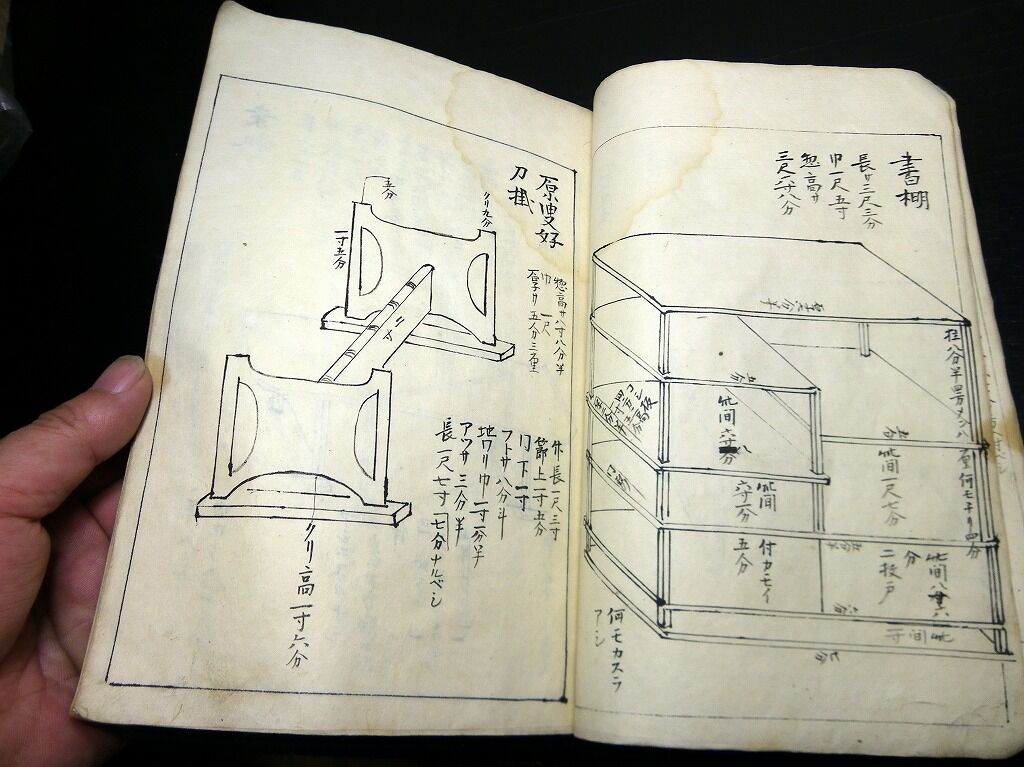 書棚
長サ三尺三分
巾一尺五寸
惣高サ
三尺六寸八分
厚七分半
柱八分半四方
五分
此間六寸八分
此間
六寸一分
此間一尺七分
付カモイ
五分
二枚戸
此間八
分
此間
寸
七分
何モカスラ
アシ
原叟好
刀掛
惣高サ八寸八分半
巾一尺
厚サ五分三厘
クリ九分
五分
一寸五分
竹長一尺三寸
節上一寸五分
同下一寸
フトサ八分斗
地ワリ巾一寸一分半
アツサ三分半
長一尺七寸七分ナルベシ
クリ高一寸六分